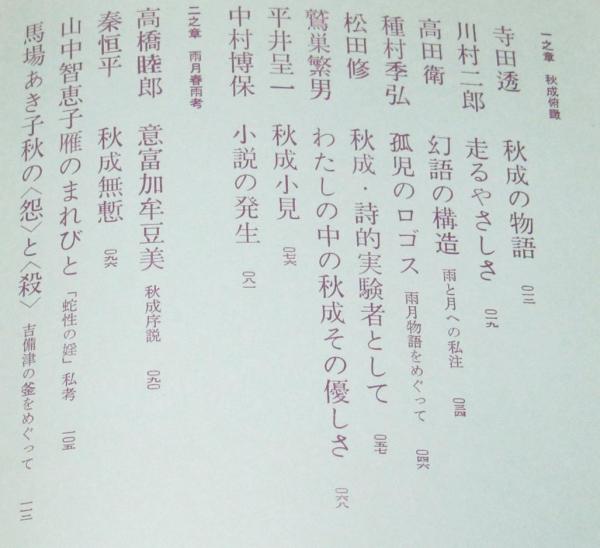 一之章 秋成俯瞰
寺田透 秋成の物語 〇一二
川村二郎 走るやさしさ 〇二九
高田衛 幻語の構造 雨と月への私注 〇三四
種村季弘 孤児のロゴス 雨月物語をめぐって 〇四六
松田修 秋成・詩的実験者として 〇五七
鷲巣繁男 わたしの中の秋成その優しさ 〇六八
平井呈一 秋成小見 〇七六
中村博保 小説の発生 〇八一
二之章 雨月春雨考
高橋睦郎 意富加牟豆美 秋成序説 〇九〇
秦恒平 秋成無慙 〇九六
山中智恵子 雁のまれびと 「蛇性の婬」私考 一〇五
馬場あき子 秋の〈怨〉と〈殺〉 吉備津の釜をめぐって 一一二